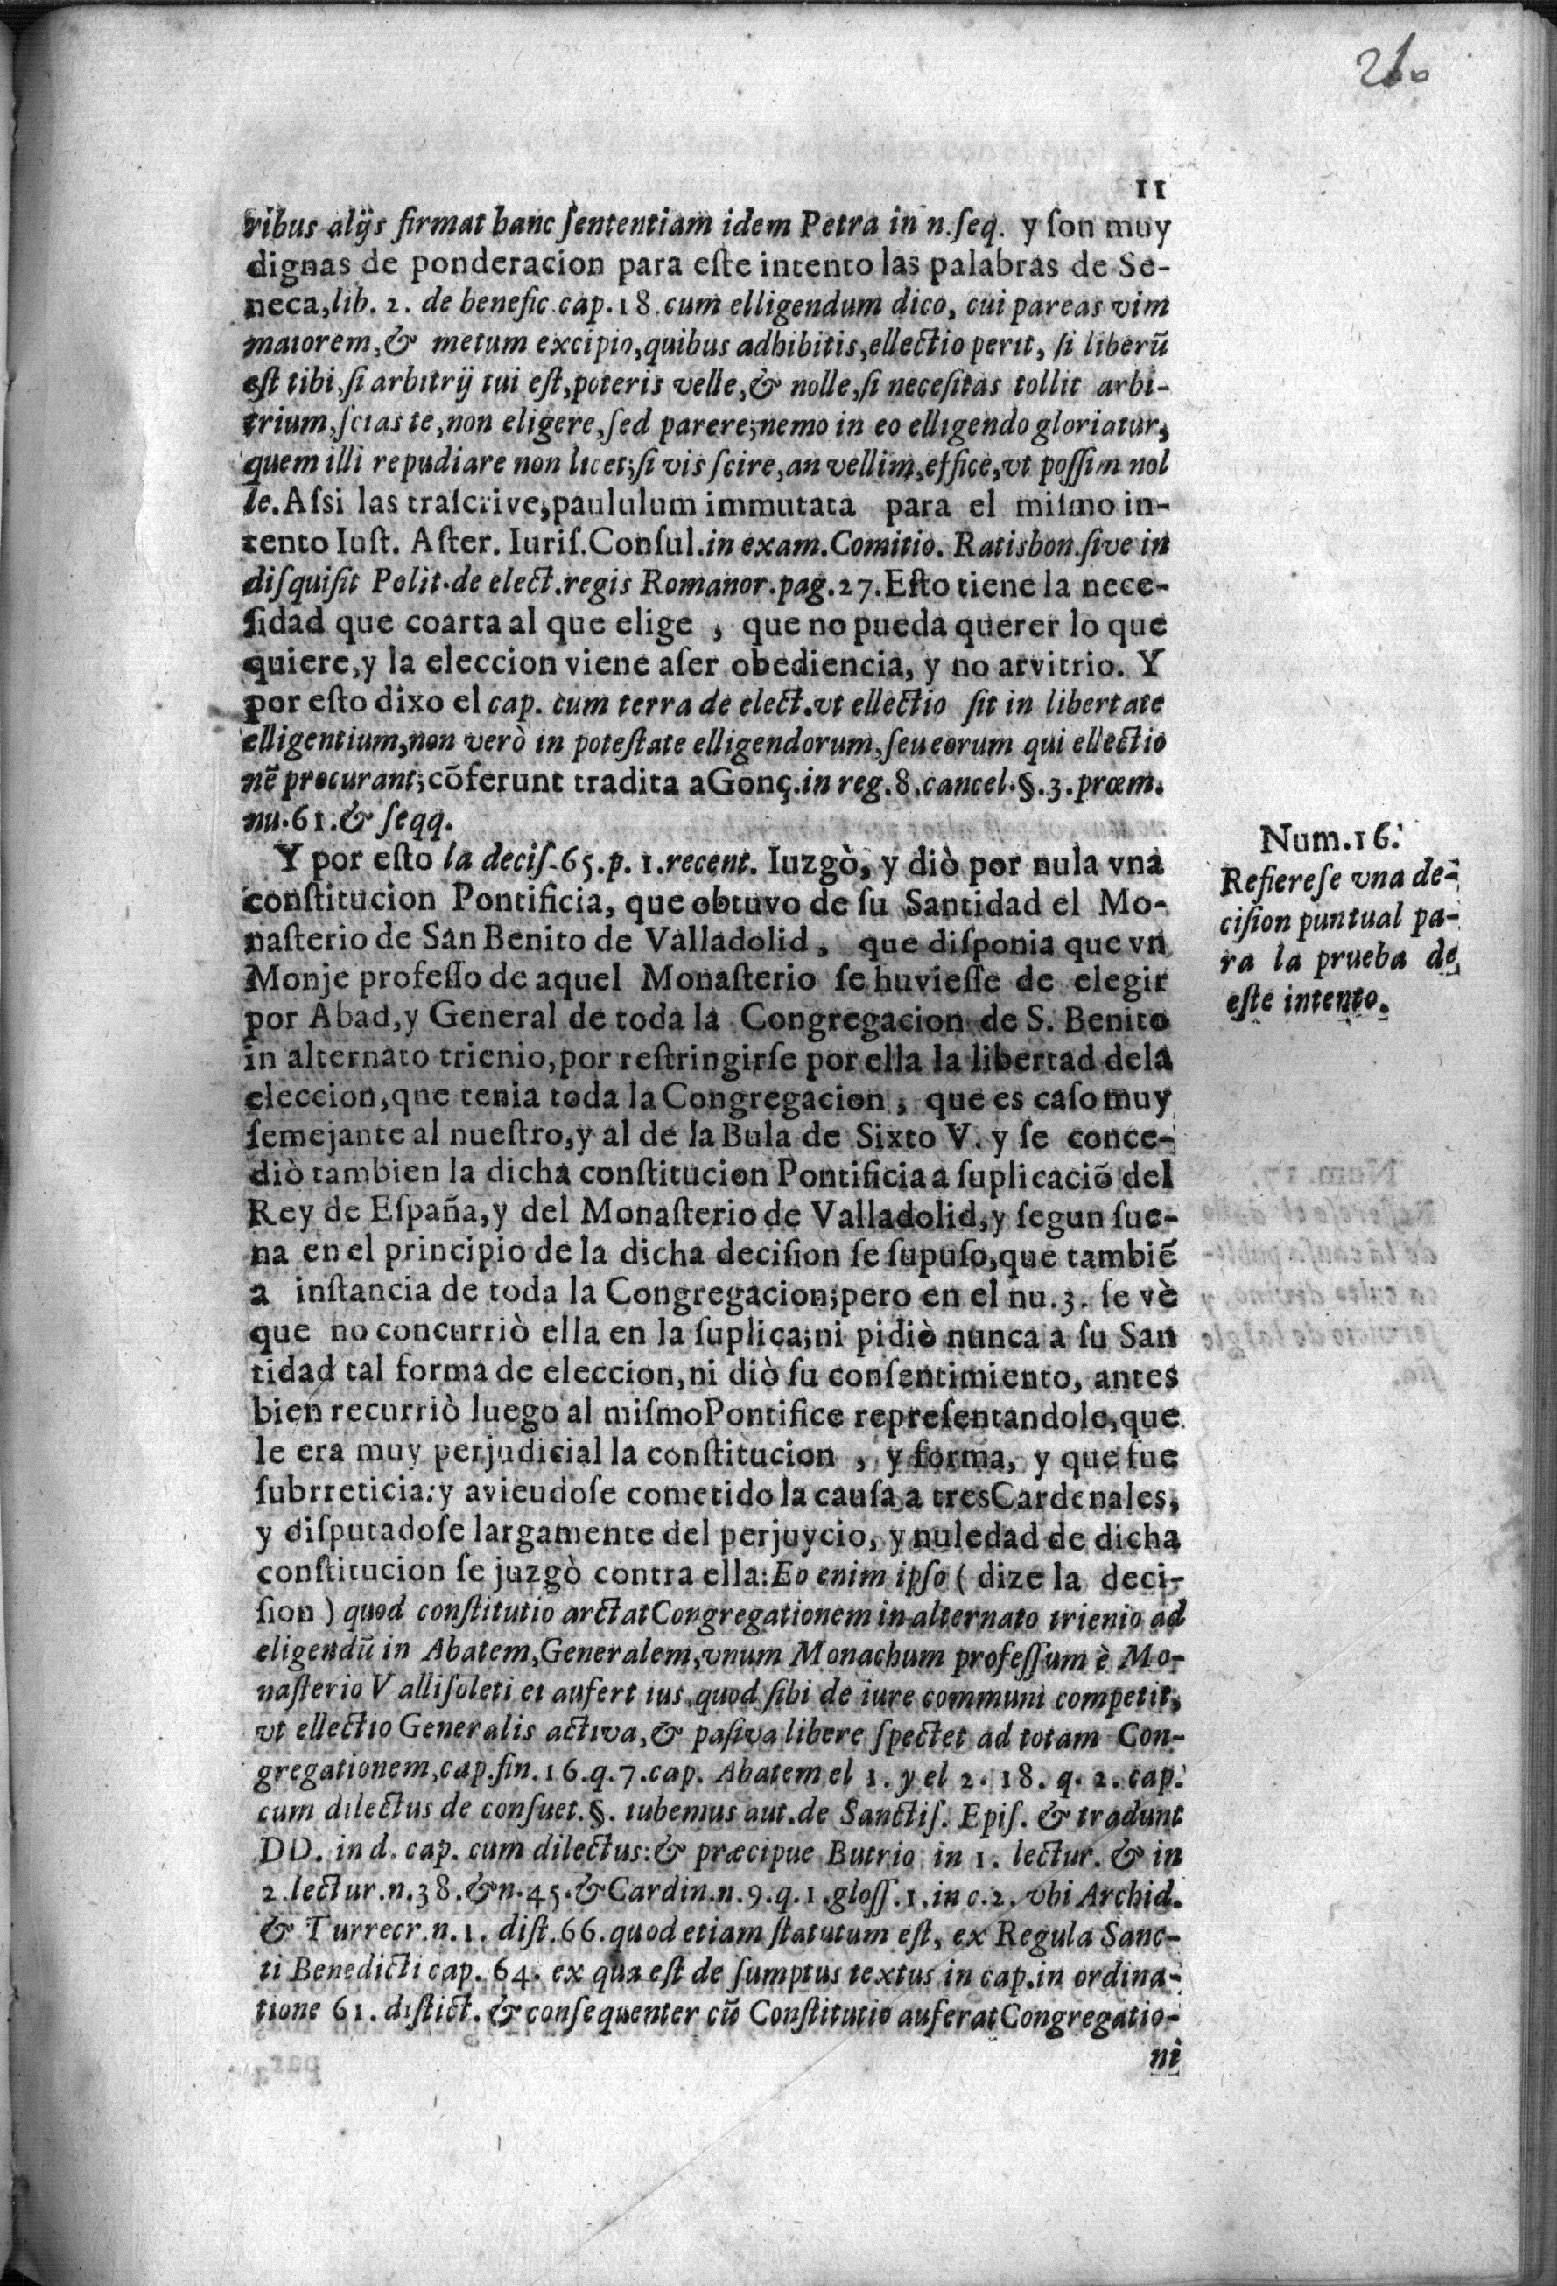 210
11
ribus alijs firmat hanc ſententiam idem Petra in n.ſeq. y ſon muy
dignas de ponderacion para eſte intento las palabras de Se-
neca,lib. 2. de benefic cap.18.cum elligendum dico, cui pareas vim
maiorem,& metum excipio,quibus adhibitis,ellectio perit, ſi liberũ
eſt tibi,ſi arbitrij tui eſt,poteris velle,& nolle,ſi neceſitas tollit arbi-
trium,ſcias te,non eligere,ſed parere;nemo in eo elligendo gloriatur,
quem illi repudiare non licet;ſi vis ſcire,an vellim,effice,vt poſſim nol
le.Aſsi las traſcrive,paululum immutata para el miſmo in-
tento Iuſt. Aſter. Iuriſ.Conſul.in exam.Comitio. Ratisbon.ſive in
diſquiſit Polit.de elect.regis Romanor.pag.27.Eſto tiene la nece-
ſidad que coarta al que elige , que no pueda querer lo que
quiere,y la eleccion viene aſer obediencia, y no arvitrio. Y
por eſto dixo el cap. cum terra de elect.vt ellectio ſit in libertate
elligentium,non verò in poteſtate elligendorum,ſeu eorum qui ellectio
nẽ procurant;cõferunt tradita a Gonç.in reg.8.cancel.§.3.prœm.
nu.61.& ſeqq.
Y por eſto la deciſ.65.p.1.recent. Iuzgò, y diò por nula vna
conſtitucion Pontificia, que obtuvo de ſu Santidad el Mo-
naſterio de San Benito de Valladolid, que diſponia que vn
Monje profeſſo de aquel Monaſterio ſe huvieſſe de elegir
por Abad,y General de toda la Congregacion de S. Benito
in alternato trienio,por reſtringirſe por ella la libertad dela
eleccion,que tenia toda la Congregacion, que es caſo muy
ſemejante al nueſtro,y al de la Bula de Sixto V. y ſe conce-
diò tambien la dicha conſtitucion Pontificia a ſuplicaciõ del
Rey de Eſpaña,y del Monaſterio de Valladolid,y ſegun ſue-
na en el principio de la dicha deciſion ſe ſupuſo,que tambiẽ
a inſtancia de toda la Congregacion;pero en el nu.3. ſe vè
que no concurriò ella en la ſuplica;ni pidiò nunca a ſu San
tidad tal forma de eleccion,ni diò ſu conſentimiento, antes
bien recurriò luego al miſmo Pontifice repreſentandole,que
le era muy perjudicial la conſtitucion , y forma, y que fue
ſubrreticia:y avieudoſe cometido la cauſa a tres Cardenales,
y diſputadoſe largamente del perjuycio, y nuledad de dicha
conſtitucion ſe juzgò contra ella:Eo enim ipſo ( dize la deci-
ſion ) quod conſtitutio arctat Congregationem in alternato trienio ad
eligendũ in Abatem,Generalem,vnum Monachum profeſſum è Mo-
naſterio Valliſoleti et aufert ius,quod ſibi de iure communi competit,
vt ellectio Generalis activa,& paſiva libere ſpectet ad totam Con-
gregationem,cap.fin.16.q.7.cap. Abatem el 1. y el 2. 18. q. 2. cap.
cum dilectus de conſuet.§. iubemus aut.de Sanctiſ. Epiſ. & tradunt
DD. in d. cap. cum dilectus:& præcipue Butrio in 1. lectur. & in
2.lectur.n.38.& n.45.& Cardin.n.9.q.1.gloſſ.1.in c.2. vbi Archid.
& Turrecr.n.1. diſt.66.quod etiam ſtatutum eſt, ex Regula Sanc-
ti Benedicti cap. 64. ex qua eſt de ſumptus textus in cap.in ordina-
tione 61. diſtict. & conſequenter cũ Conſtitutio auferat Congregatio-
ni
Num.16.
Refiereſe vna de-
ciſion puntual pa-
ra la prueba de
eſte intento.